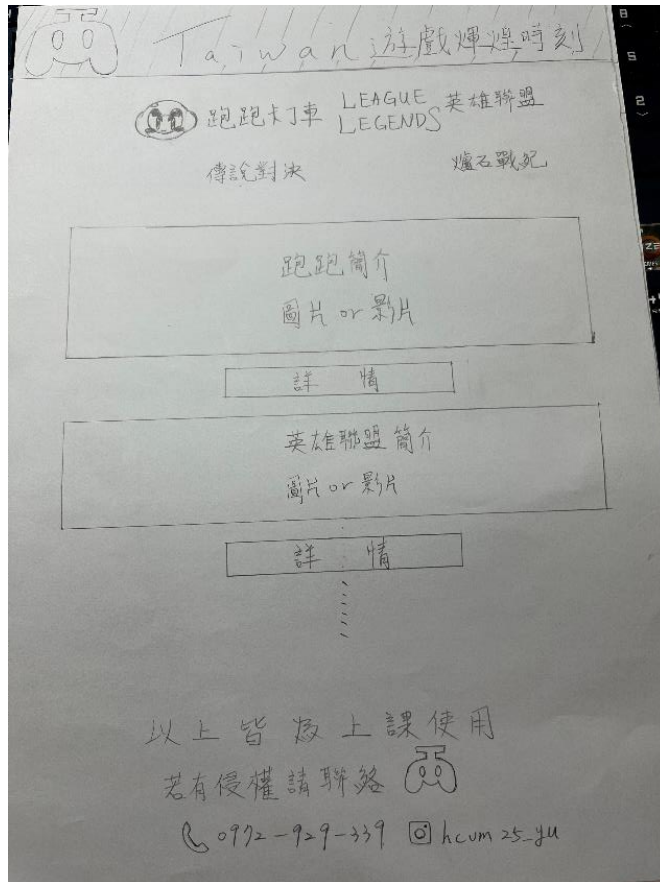 Taiwan 遊戲輝煌時刻
跑跑卡丁車 LEAGUE LEGENDS 英雄聯盟
傳說對決 爐石戰紀
跑跑簡介
圖片 or 影片
詳 情
英雄聯盟簡介
圖片 or 影片
詳 情
以上皆為上課使用
若有侵權請聯絡
0972-929-339 hcum25_yu